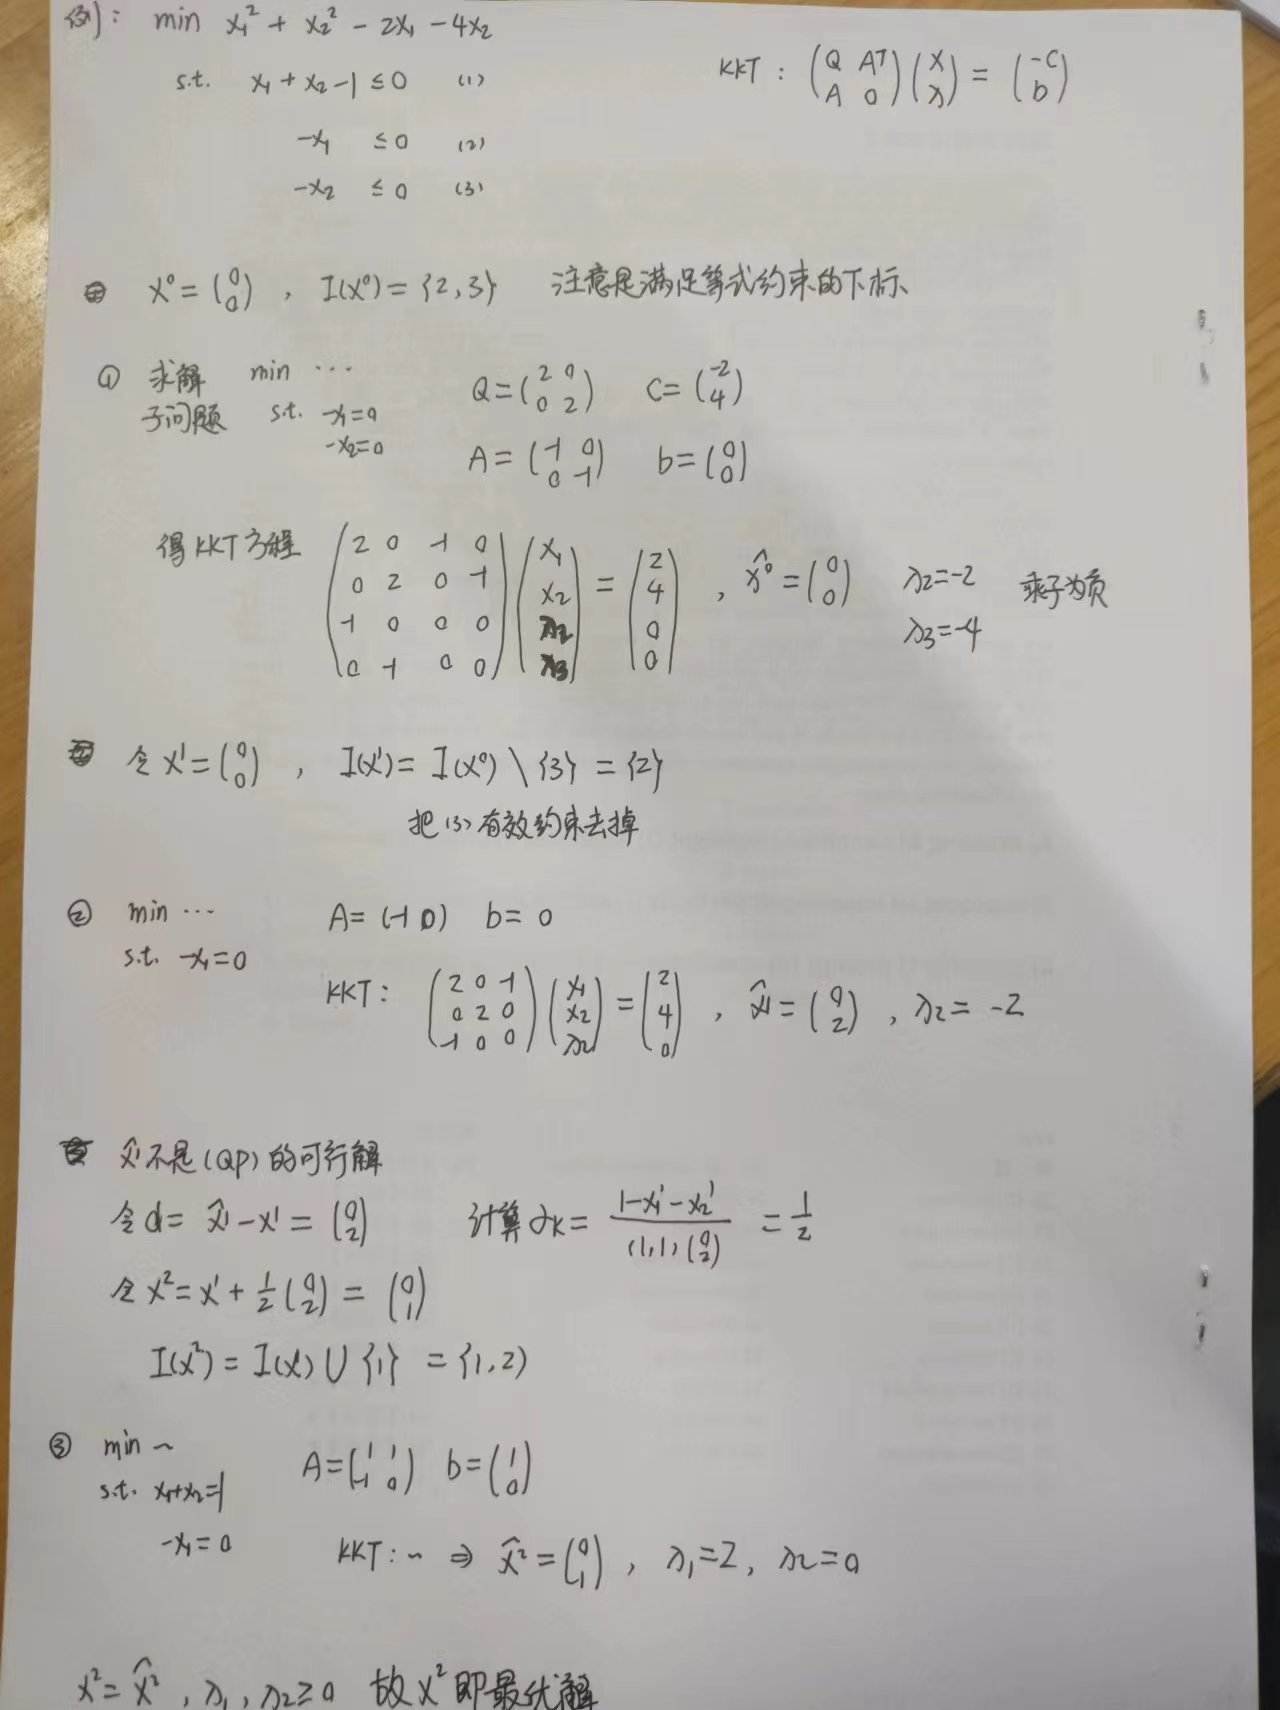 例: min x₁² + x₂² - 2x₁ - 4x₂
s.t. x₁ + x₂ - 1 ≤ 0 (1)
-x₁ ≤ 0 (2)
-x₂ ≤ 0 (3)
KKT: (Q Aᵀ; A 0) (x; λ) = (-c; b)
x⁰ = (0; 0), I(x⁰) = {2, 3} 注意是满足等式约束的下标
① 求解子问题 min ⋯
s.t. -x₁ = 0
-x₂ = 0
Q = (2 0; 0 2) C = (-2; 4)
A = (-1 0; 0 -1) b = (0; 0)
得KKT方程 (2 0 -1 0; 0 2 0 -1; -1 0 0 0; 0 -1 0 0) (x₁; x₂; λ₂; λ₃) = (2; 4; 0; 0), x̂⁰ = (0; 0) λ₂ = -2 λ₃ = -4 乘子为负
令 x¹ = (0; 0), I(x¹) = I(x⁰) \ {3} = {2}
把(3)有效约束去掉
② min ⋯ A = (-1 0) b = 0
s.t. -x₁ = 0
KKT: (2 0 -1; 0 2 0; -1 0 0) (x₁; x₂; λ₂) = (2; 4; 0), x̂¹ = (0; 2), λ₂ = -2
x̂¹不是(QP)的可行解
令 d = x̂¹ - x¹ = (0; 2) 计算 αₖ = (1 - x₁¹ - x₂¹) / ((1,1)(0; 2)) = 1/2
令 x² = x¹ + 1/2 (0; 2) = (0; 1)
I(x²) = I(x¹) ∪ {1} = {1, 2}
③ min ~ A = (1 1; -1 0) b = (1; 0)
s.t. x₁+x₂=1
-x₁ = 0
KKT: ~ ⇒ x̂² = (0; 1), λ₁ = 2, λ₂ = 0
x² = x̂², λ₁, λ₂ ≥ 0 故x²即最优解